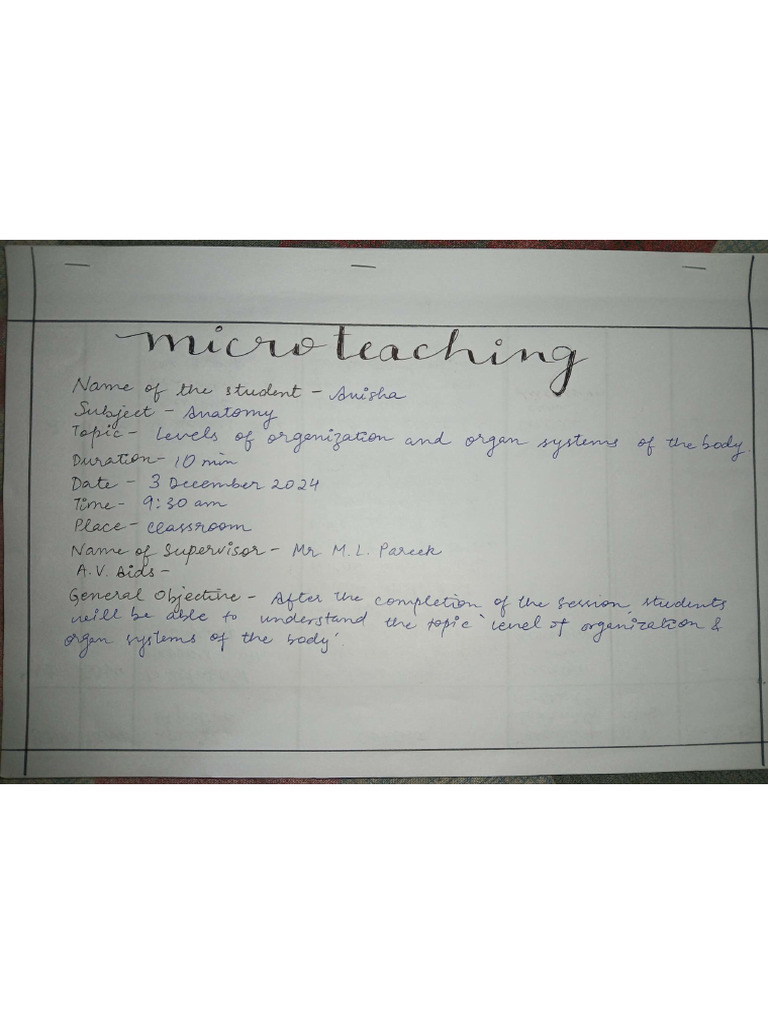 microteaching
Name of the student - Anisha
Subject - Anatomy
Topic - Levels of organization and organ systems of the body.
Duration - 10 min
Date - 3 December 2024
Time - 9:30 am
Place - Classroom
Name of Supervisor - Mr M.L. Pareek
A.V. Aids -
General Objective - After the completion of the session, students
will be able to understand the topic 'level of organization &
organ systems of the body'.